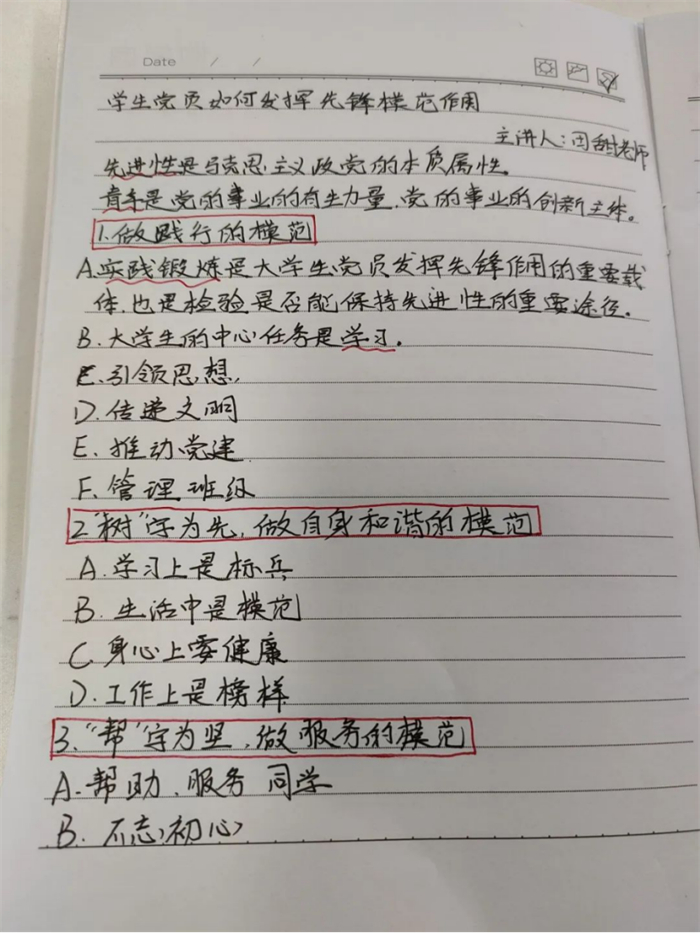 Date / /
学生党员如何发挥先锋模范作用
主讲人:田甜老师
先进性是马克思主义政党的本质属性。
青年是党的事业的有生力量,党的事业的创新主体。
1.做践行的模范
A.实践锻炼是大学生党员发挥先锋作用的重要载
体,也是检验是否能保持先进性的重要途径.
B.大学生的中心任务是学习.
C.引领思想.
D.传递文明
E.推动党建
F.管理班级
2."树"字为先,做自身和谐的模范
A.学习上是标兵
B.生活中是模范
C.身心上要健康
D.工作上是榜样
3."帮"字为坚,做服务的模范
A.帮助、服务 同学
B.不忘初心